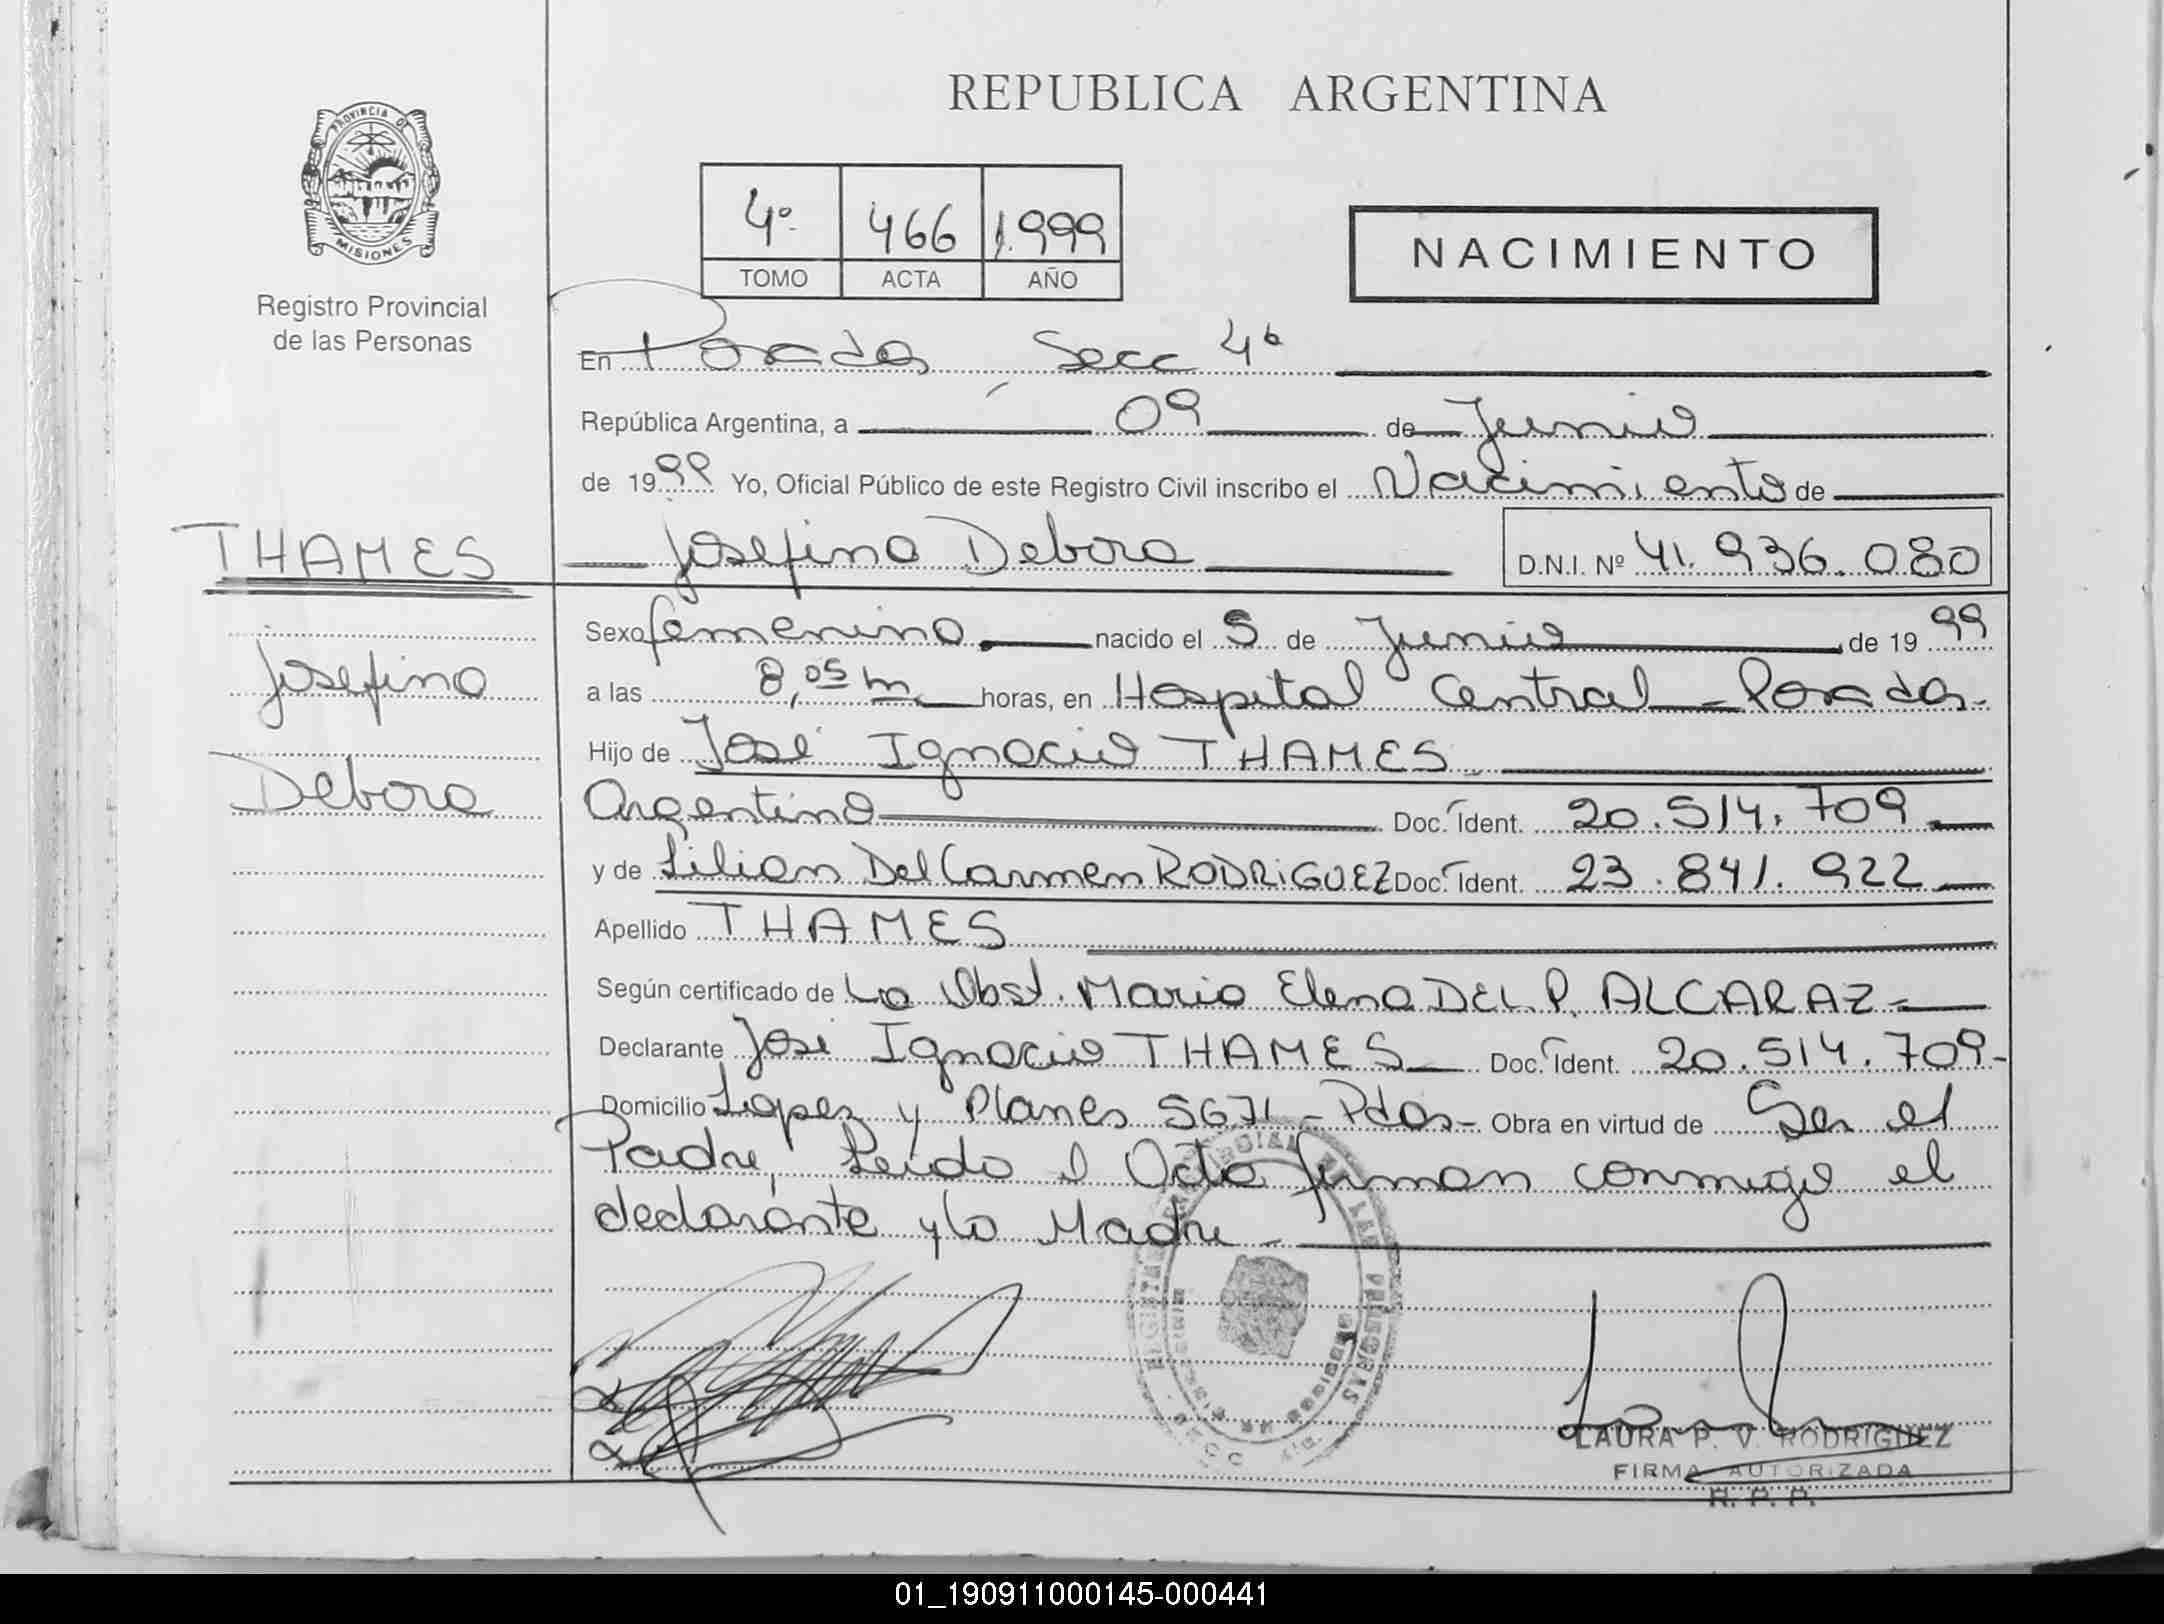 REPUBLICA ARGENTINA
PROVINCIA DE
MISIONES
Registro Provincial
de las Personas
4º 466 1.999
TOMO ACTA AÑO
NACIMIENTO
En Posadas Secc 4ª
República Argentina, a 09 de Junio
de 1999 Yo, Oficial Público de este Registro Civil inscribo el Nacimiento de
THAMES
Josefina Debora D.N.I. Nº 41.936.080
Sexo femenino nacido el 5 de Junio de 1999
Josefina
a las 8,05 h. horas, en Hospital Central - Posadas.
Hijo de José Ignacio THAMES
Debora
Argentino Doc. Ident. 20.514.709
y de Lilian Del Carmen RODRIGUEZ Doc. Ident. 23.841.922
Apellido THAMES
Según certificado de La Obst. Maria Elena DEL P. ALCARAZ
Declarante José Ignacio THAMES Doc. Ident. 20.514.709-
Domicilio Lopez y Planes 5671 - Pdas- Obra en virtud de Ser el
Padre, Leido el Acta firman conmigo el
declarante y la Madre
LAURA P. V. RODRIGUEZ
FIRMA AUTORIZADA
R. P. P.
01_190911000145-000441